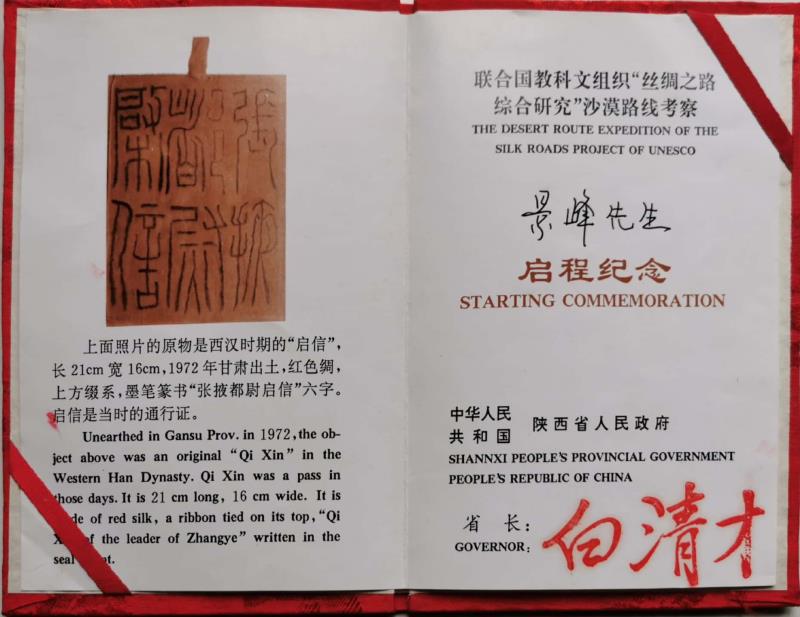 張掖
都尉
棨信
上面照片的原物是西汉时期的“启信”,
长21cm宽16cm,1972年甘肃出土,红色绸,
上方缀系,墨笔篆书“张掖都尉启信”六字。
启信是当时的通行证。
Unearthed in Gansu Prov. in 1972, the ob-
ject above was an original “Qi Xin” in the
Western Han Dynasty. Qi Xin was a pass in
those days. It is 21 cm long, 16 cm wide. It is
made of red silk, a ribbon tied on its top, “Qi
Xin of the leader of Zhangye” written in the
seal
联合国教科文组织“丝绸之路
综合研究”沙漠路线考察
THE DESERT ROUTE EXPEDITION OF THE
SILK ROADS PROJECT OF UNESCO
景峰先生
启程纪念
STARTING COMMEMORATION
中华人民共和国 陕西省人民政府
SHANNXI PEOPLE'S PROVINCIAL GOVERNMENT
PEOPLE'S REPUBLIC OF CHINA
省长: 白清才
GOVERNOR: